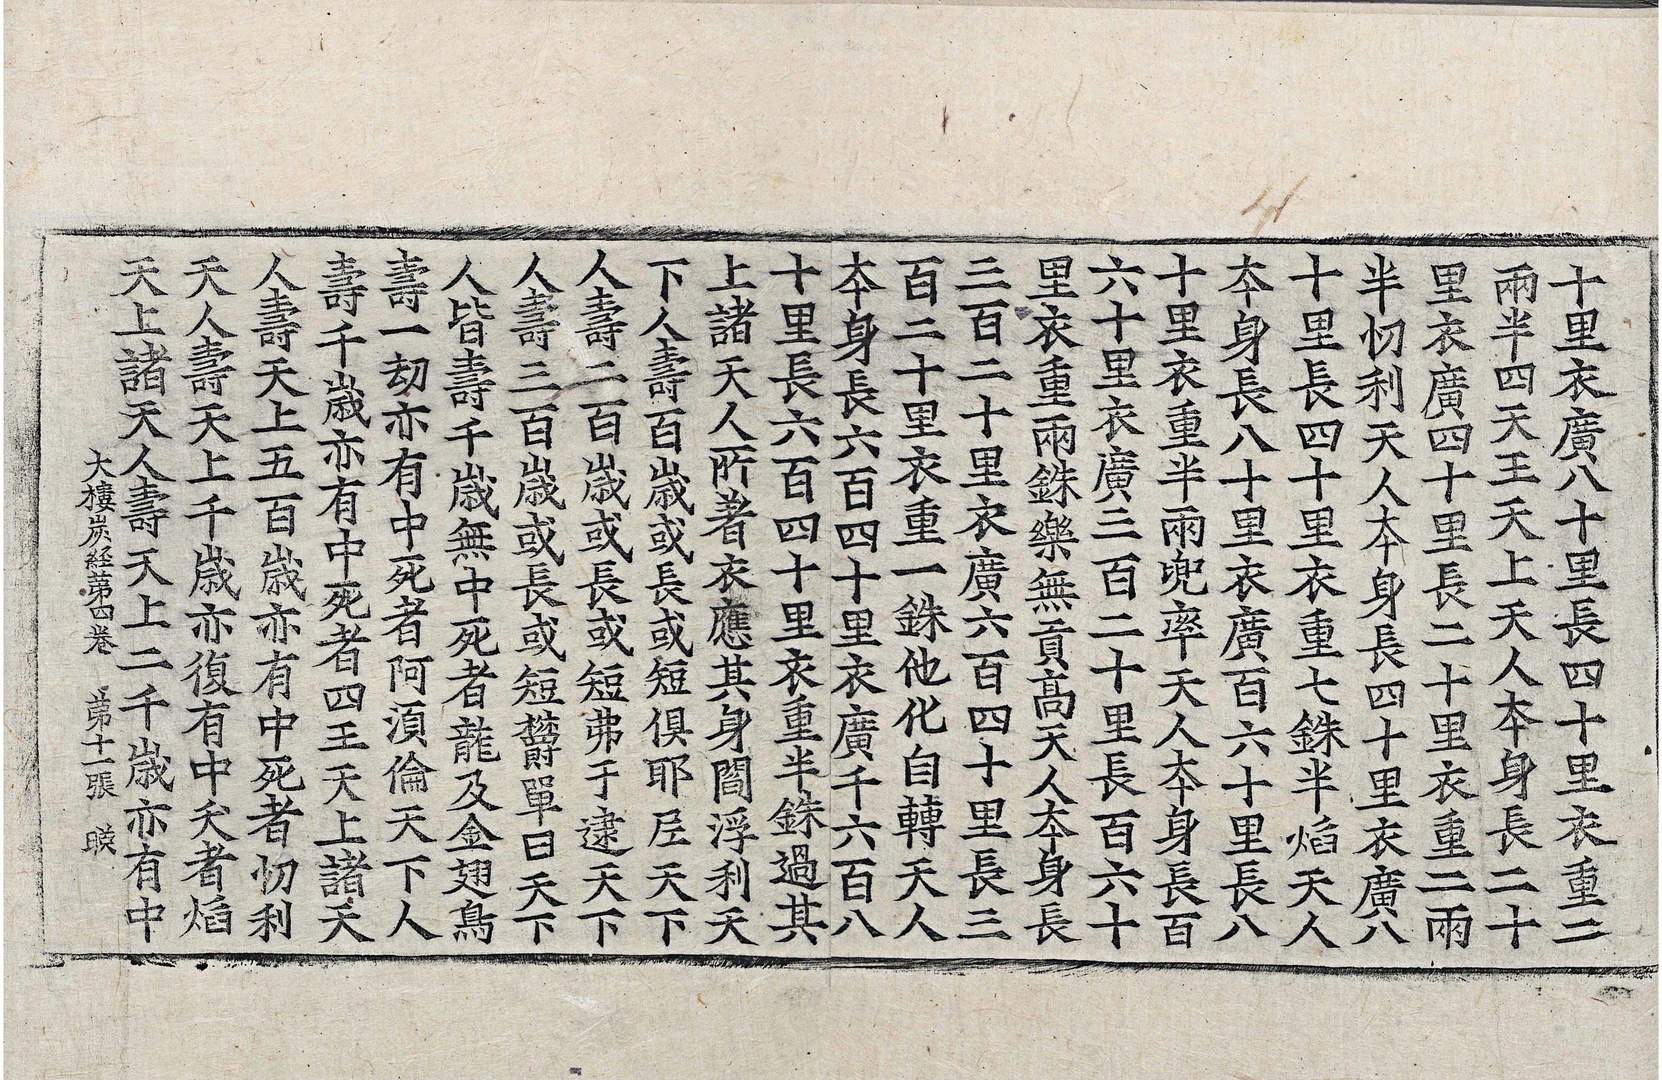 十里衣廣八十里長四十里衣重二
兩半四天王天上天人夲身長二十
里衣廣四十里長二十里衣重二兩
半忉利天人夲身長四十里衣廣八
十里長四十里衣重七銖半焰天人
夲身長八十里衣廣百六十里長八
十里衣重半兩兜率天人夲身長百
六十里衣廣三百二十里長百六十
里衣重兩銖樂無貢高天人夲身長
三百二十里衣廣六百四十里長三
百二十里衣重一銖他化自轉天人
夲身長六百四十里衣廣千六百八
十里長六百四十里衣重半銖過其
上諸天人所著衣應其身閻浮利天
下人壽百歲或長或短俱耶尼天下
人壽二百歲或長或短弗于逮天下
人壽三百歲或長或短鬱單曰天下
人皆壽千歲無中死者龍及金翅鳥
壽一劫亦有中死者阿湏倫天下人
壽千歲亦有中死者四王天上諸天
人壽天上五百歲亦有中死者忉利
天人壽天上千歲亦復有中夭者焰
天上諸天人壽天上二千歲亦有中
大樓炭経第四卷 苐十一張 暎